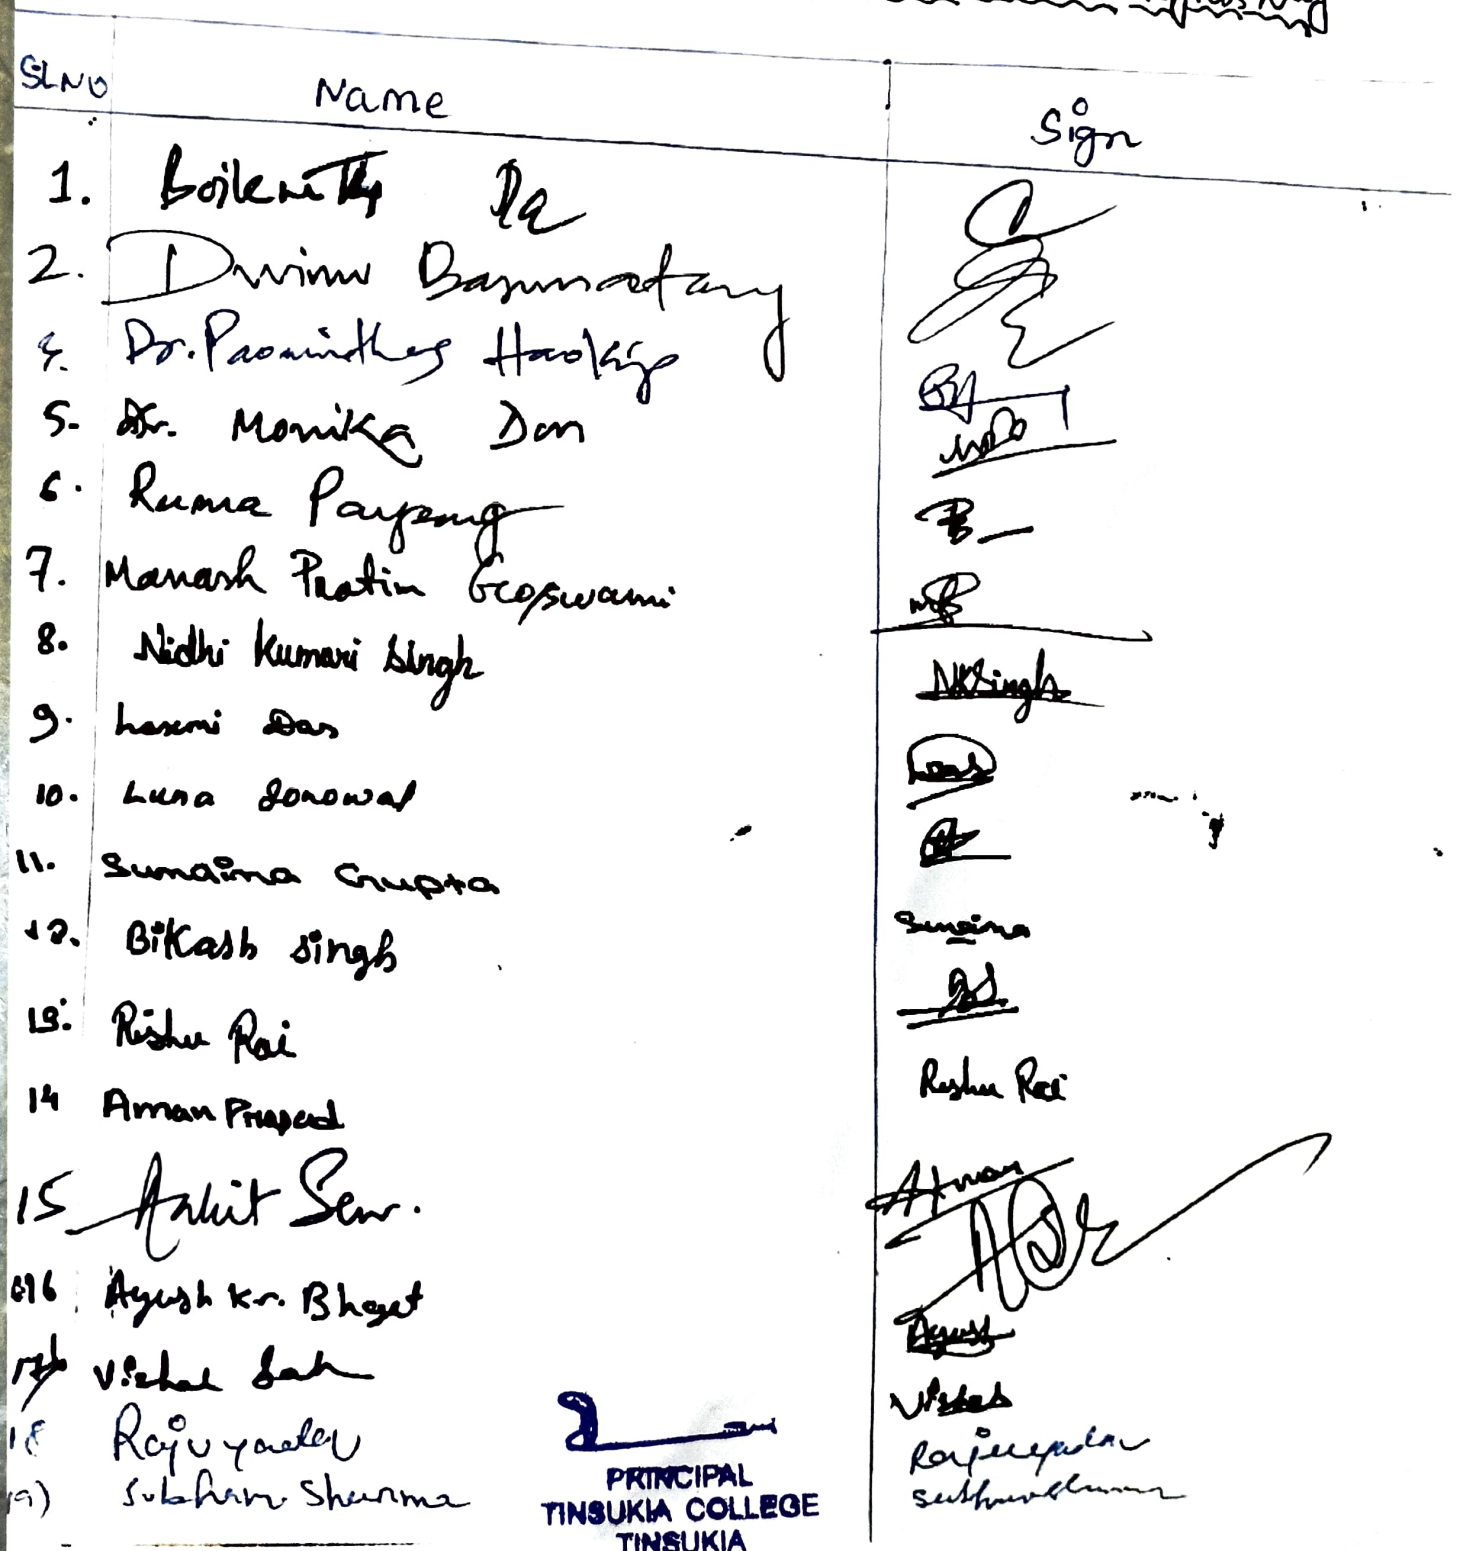 SL NO Name Sign
1.
2. Dwimu Basumatary
4. Dr. Paominthang Haokip
5. Dr. Monika Don
6. Ruma Payeng
7. Manash Pratim Goswami
8. Nidhi Kumari Singh NKSingh
9. Laxmi Das LDas
10. Luna Sonowal
11. Sunaina Gupta Sunaina
12. Bikash Singh BS.
13. Rishu Rai Rishu Rai
14 Aman Prasad Aman
15 Ankit Sen.
16 Ayush Kr. Bhagat Ayush
17 Vishal Sah
18 Raju yadav Raju yadav
19) Subham Sharma
PRINCIPAL
TINSUKIA COLLEGE
TINSUKIA